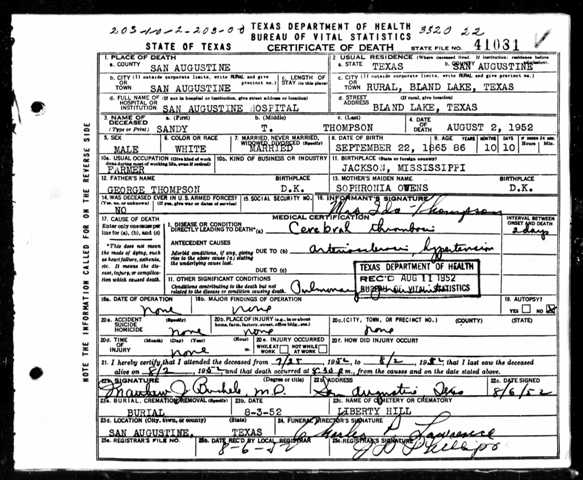 203-10-2-203-00 TEXAS DEPARTMENT OF HEALTH 3320 22
BUREAU OF VITAL STATISTICS
STATE OF TEXAS CERTIFICATE OF DEATH STATE FILE NO. 41031
1. PLACE OF DEATH 2. USUAL RESIDENCE (Where deceased lived. If institution: residence before
a. COUNTY SAN AUGUSTINE a. STATE TEXAS b. COUNTY SAN AUGUSTINE
b. CITY (If outside corporate limits, write RURAL and give precinct no.) c. LENGTH OF STAY (in this place) c. CITY (If outside corporate limits, write RURAL and give precinct no.)
OR TOWN SAN AUGUSTINE OR TOWN RURAL, BLAND LAKE, TEXAS
d. FULL NAME OF (If not in hospital or institution, give street address or location) d. STREET (If rural, give location)
HOSPITAL OR INSTITUTION SAN AUGUSTINE HOSPITAL ADDRESS BLAND LAKE, TEXAS
3. NAME OF DECEASED a. (First) b. (Middle) c. (Last) 4. DATE OF DEATH
(Type or Print) SANDY T. THOMPSON AUGUST 2, 1952
5. SEX 6. COLOR OR RACE 7. MARRIED, NEVER MARRIED, WIDOWED, DIVORCED (Specify) 8. DATE OF BIRTH 9. AGE
MALE WHITE MARRIED SEPTEMBER 22, 1865 86 10 10
10a. USUAL OCCUPATION (Give kind of work done during most of working life, even if retired) 10b. KIND OF BUSINESS OR INDUSTRY 11. BIRTHPLACE (State or foreign country)
FARMER JACKSON, MISSISSIPPI
12. FATHER'S NAME 13. MOTHER'S MAIDEN NAME
GEORGE THOMPSON D.K. SOPHRONIA OWENS D.K.
14. WAS DECEASED EVER IN U.S. ARMED FORCES? 15. SOCIAL SECURITY NO. 16. INFORMANT'S SIGNATURE
(Yes, no, or unknown) (If yes, give war or dates of service)
NO Mrs Ida Thompson
17. CAUSE OF DEATH MEDICAL CERTIFICATION INTERVAL BETWEEN ONSET AND DEATH
Enter only one cause per line for (a), (b), and (c) I. DISEASE OR CONDITION DIRECTLY LEADING TO DEATH* (a) Cerebral thrombosis 2 days
*This does not mean the mode of dying, such as heart failure, asthenia, etc. It means the disease, injury, or complication which caused death. ANTECEDENT CAUSES
Morbid conditions, if any, giving rise to the above cause (a) stating the underlying cause last. DUE TO (b) arteriosclerosis, hypertension
DUE TO (c)
TEXAS DEPARTMENT OF HEALTH
REC'D AUG 11 1952
BUREAU OF VITAL STATISTICS
II. OTHER SIGNIFICANT CONDITIONS
Conditions contributing to the death but not related to the disease or condition causing death. Pulmonary
18a. DATE OF OPERATION 18b. MAJOR FINDINGS OF OPERATION 19. AUTOPSY?
none none YES NO X
20a. ACCIDENT SUICIDE HOMICIDE (Specify) 20b. PLACE OF INJURY (e.g., in or about home, farm, factory, street, office bldg., etc.) 20c. (CITY, TOWN, OR PRECINCT NO.) (COUNTY) (STATE)
none none none
20d. TIME OF INJURY (Month) (Day) (Year) (Hour) 20e. INJURY OCCURRED 20f. HOW DID INJURY OCCUR?
none WHILE AT WORK NOT WHILE AT WORK
21. I hereby certify that I attended the deceased from 7/25 1952 to 8/2, 1952 that I last saw the deceased
alive on 8/2, 1952 and that death occurred at 8:30 p.m., from the causes and on the date stated above.
22a. SIGNATURE (Degree or title) 22b. ADDRESS 22c. DATE SIGNED
M.D. San Augustine Texas 8/6/52
23a. BURIAL, CREMATION, REMOVAL (Specify) 23b. DATE 23c. NAME OF CEMETERY OR CREMATORY
BURIAL 8-3-52 LIBERTY HILL
23d. LOCATION (City, town, or county) (State) 24. FUNERAL DIRECTOR'S SIGNATURE
SAN AUGUSTINE, TEXAS Lawrence
25a. REGISTRAR'S FILE NO. 25b. DATE REC'D BY LOCAL REGISTRAR 25c. REGISTRAR'S SIGNATURE
8-6-52
NOTE THE INFORMATION CALLED FOR ON THE REVERSE SIDE